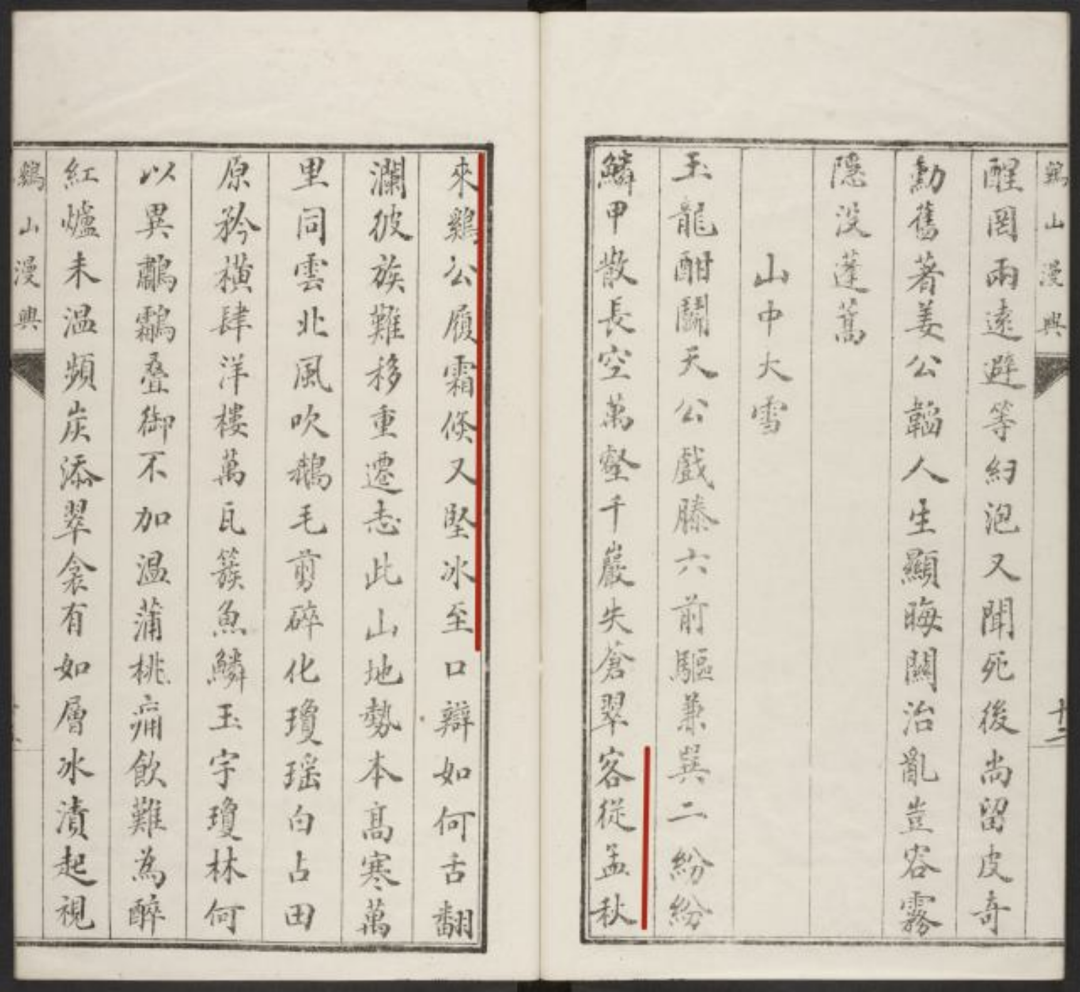 鷄山漫興
醒罔兩遠避等紉泡又聞死後尚留皮奇
勳舊著姜公韜人生顯晦關治亂豈容霧
隱没蓬蒿
山中大雪
玉龍酣鬪天公戲滕六前驅兼巽二紛紛
鱗甲散長空萬壑千巖失蒼翠客從孟秋
來鷄公履霜倏又堅冰至口辯如何舌翻
瀾彼族難移重遷志此山地勢本高寒萬
里同雲北風吹鵝毛剪碎化瓊瑶白占田
原矜橫肆洋樓萬瓦簇魚鱗玉宇瓊林何
以異鸘叠御不加温蒲桃痛飲難為醉
紅爐未温頻炭添翠衾有如層冰漬起視
鷄山漫興